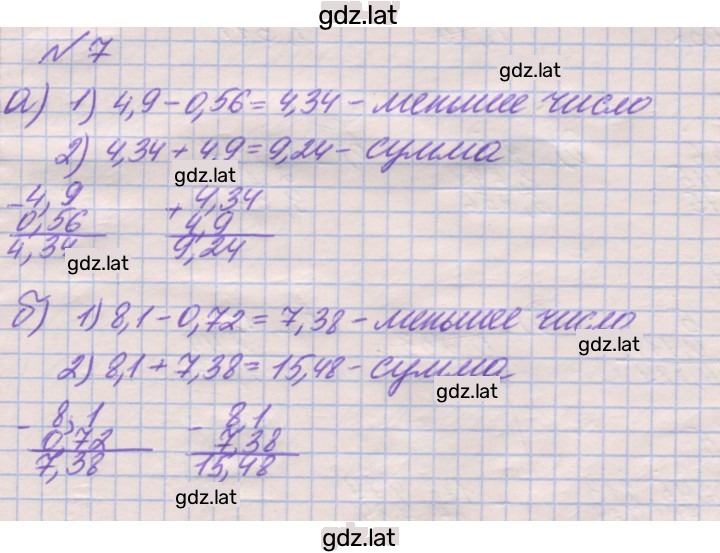 gdz.lat
№7
gdz.lat
а) 1) 4,9 - 0,56 = 4,34 - меньшее число
2) 4,34 + 4,9 = 9,24 - сумма
gdz.lat
- 4,9
0,56
4,34
+ 4,34
4,9
9,24
gdz.lat
б) 1) 8,1 - 0,72 = 7,38 - меньшее число
gdz.lat
2) 8,1 + 7,38 = 15,48 - сумма
gdz.lat
- 8,1
0,72
7,38
- 8,1
7,38
15,48
gdz.lat
gdz.lat